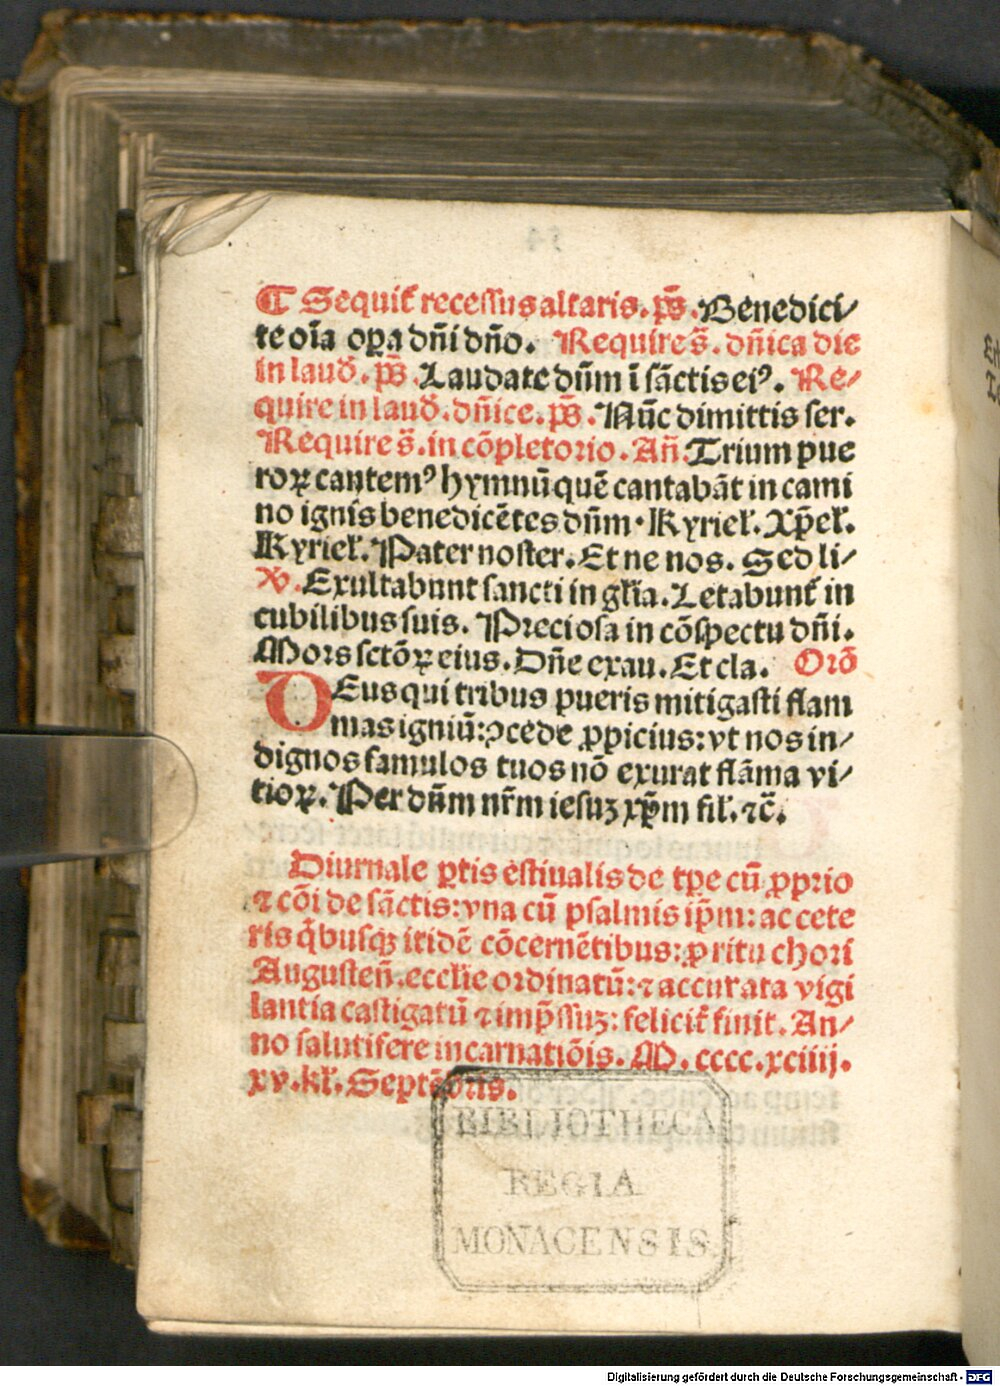 ¶ Sequit᷑ recessus altaris. p̄s. Benedici/
te oĩa oꝑa dn̄i dn̄o. Require s̄. dn̄ica die
in laud̄. p̄s. Laudate dn̄m ĩ sãctis eiꝰ. Re/
quire in laud̄. dn̄ice. p̄s. Nũc dimittis ser.
Require s̄. in cõpletorio. An̄. Trium pue
roꝝ cantemꝰ hymnũ quẽ cantabãt in cami
no ignis benedicẽtes dn̄m. Kyriel̄. Xp̄el̄.
Kyriel̄. Pater noster. Et ne nos. Sed li/
V̄. Exultabunt sancti in gl̄ia. Letabunt᷑ in
cubilibus suis. Preciosa in cõspectu dn̄i.
Mors sctõꝝ eius. Dn̄e exau. Et cla. Orõ
DEus qui tribus pueris mitigasti flam
mas igniũ: ꝯcede ꝓpicius: vt nos in/
dignos famulos tuos nõ exurat flãma vi/
tioꝝ. Per dn̄m nr̄m iesuꝫ xp̄m fil. ⁊c̄.
Diurnale ꝑtis estiualis de tp̄e cũ ꝓprio
⁊ cõi de sãctis: vna cũ psalmis ip̄m: ac cete
ris q̇busqꝫ itidẽ cõcernẽtibus: ꝓ ritu chori
Augusten̄. eccl̄ie ordinatũ: ⁊ accurata vigi
lantia castigatũ ⁊ imp̄ssuꝫ: felicit᷑ finit. An/
no salutifere incarnatiõis. M. cccc. xciiij.
xv. kl̄. Septẽbris.
BIBLIOTHECA
REGIA
MONACENSIS
Digitalisierung gefördert durch die Deutsche Forschungsgemeinschaft - DFG